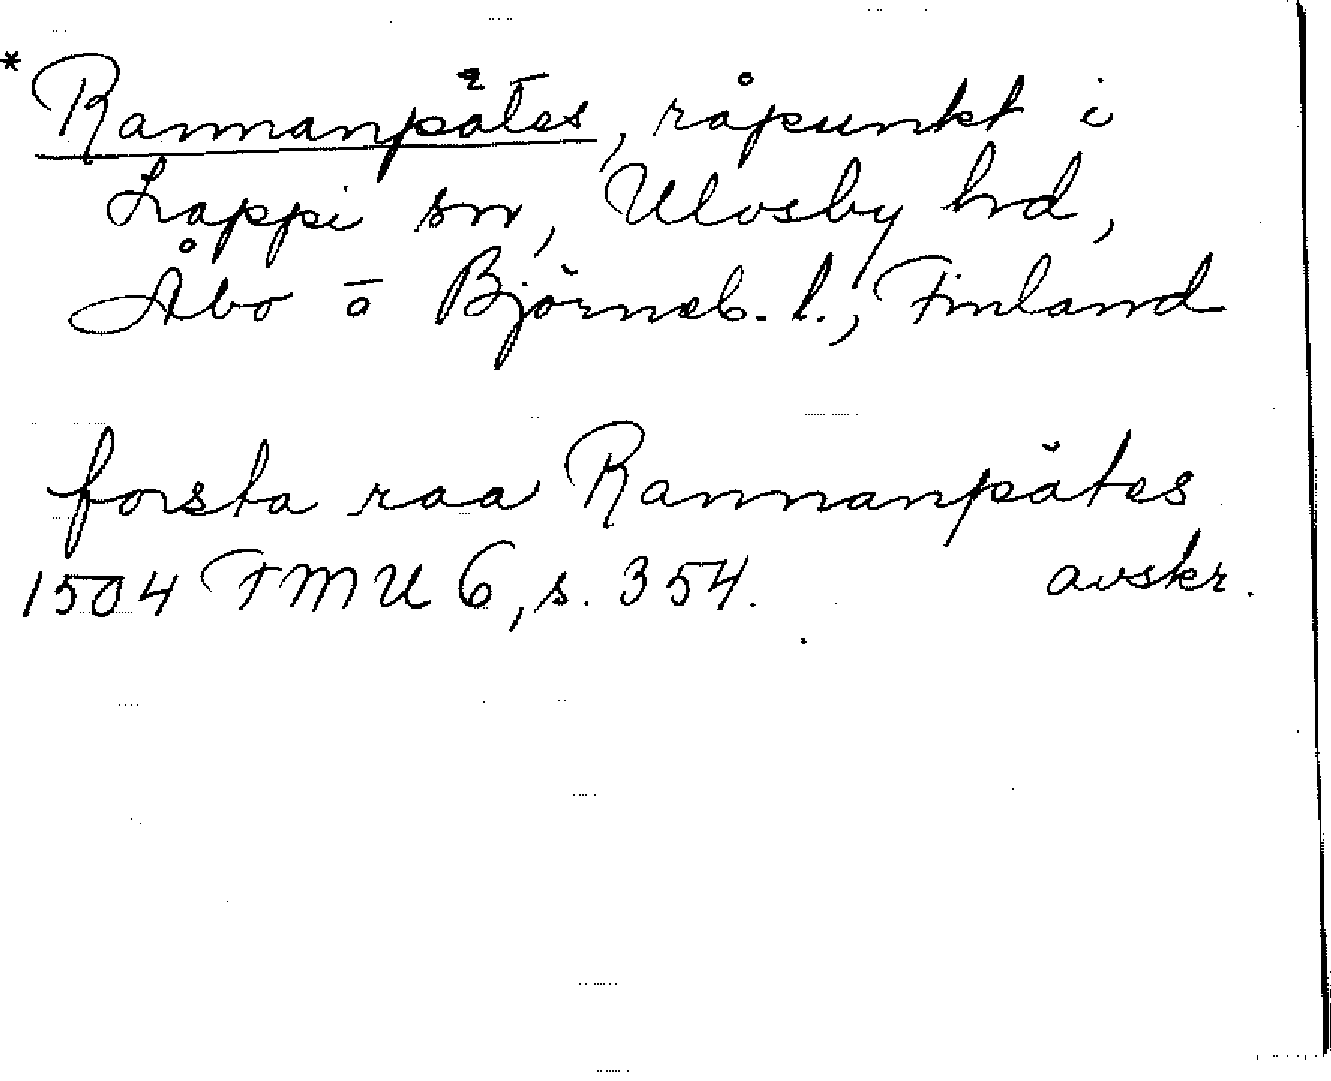 *Rannanpätes, råpunkt i
Lappi sn, Ulvsby hd,
Åbo o Björneb. l., Finland
forsta raa Rannanpätes
1504 FMU 6, s. 354. avskr.